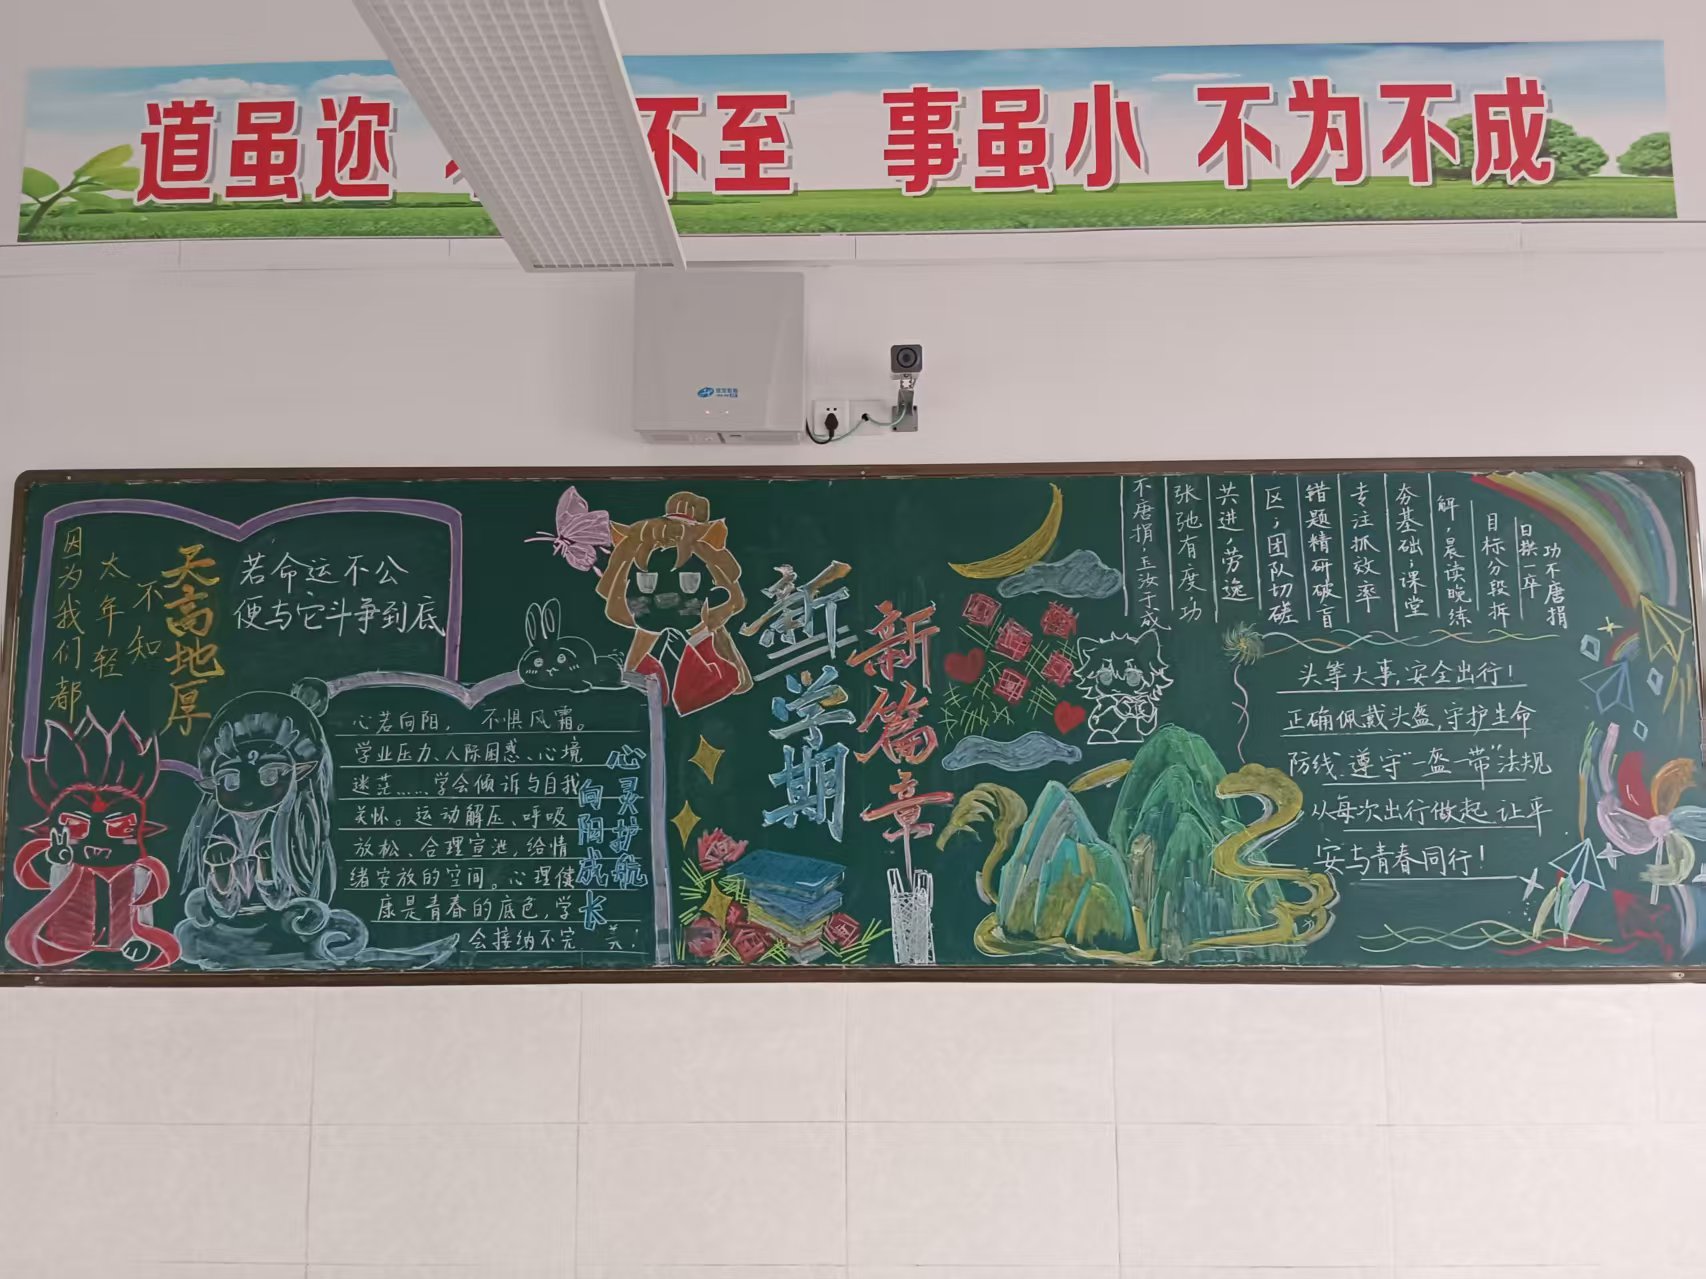 道虽迩 不至 事虽小 不为不成
因为我们都
太年轻
不知
天高地厚
若命运不公
便与它斗争到底
心若向阳，不惧风霜。
学业压力、人际困惑、心境
迷茫……学会倾诉与自我
关怀。运动解压、呼吸
放松、合理宣泄，给情
绪安放的空间。心理健
康是青春的底色，学
会接纳不完美！
心灵护航
向阳成长
新学期
新篇章
功不唐捐
日拱一卒
目标分段拆
解，晨读晚练
夯基础；课堂
专注抓效率
错题精研破盲
区；团队切磋
共进，劳逸
张弛有度，功
不唐捐，玉汝于成
头等大事，安全出行！
正确佩戴头盔，守护生命
防线．遵守“一盔一带”法规
从每次出行做起 让平
安与青春同行！